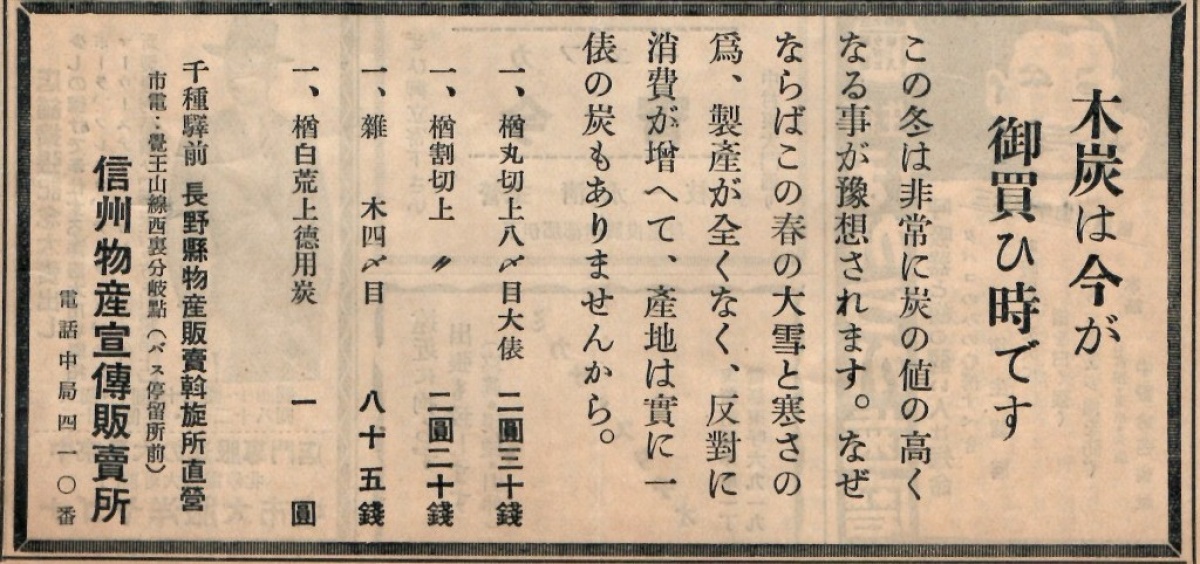 木炭は今が
御買ひ時です
この冬は非常に炭の値の高く
なる事が豫想されます。なぜ
ならばこの春の大雪と寒さの
爲、製產が全くなく、反對に
消費が增へて、產地は實に一
俵の炭もありませんから。
一、楢丸切上八〆目大俵 二圓三十錢
一、楢割切上 〃 二圓二十錢
一、雜 木四〆目 八十五錢
一、楢白荒上德用炭 一 圓
千種驛前 長野縣物產販賣斡旋所直營
市電：覺王山線西裏分岐點（バス停留所前）
信州物産宣傳販賣所
電話中局四一〇番